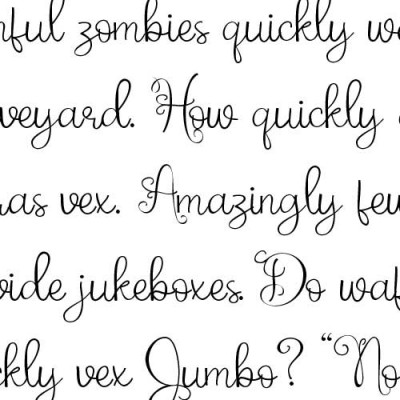 nful zombies quickly wa
veyard. How quickly
ras vex. Amazingly few
vide jukeboxes. Do waf
ckly vex Jumbo? “No